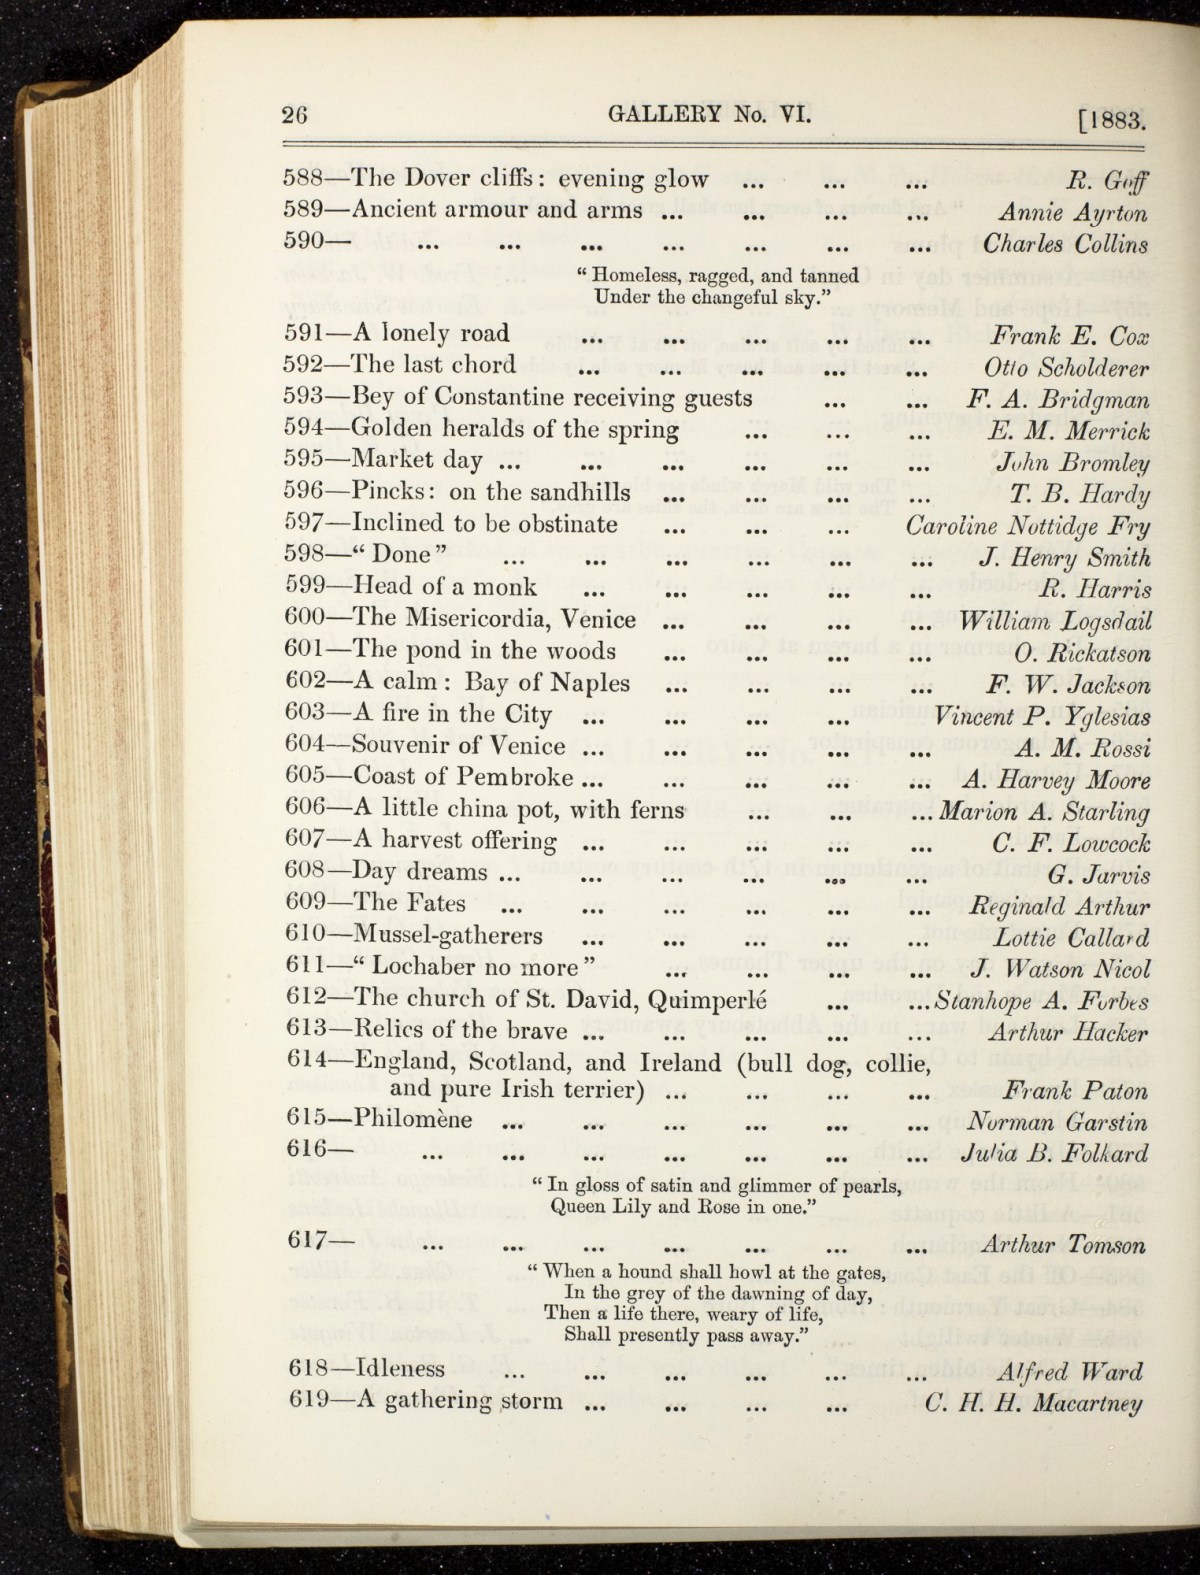 26 GALLERY No. VI. [1883.
588—The Dover cliffs: evening glow ... ... ... R. Goff
589—Ancient armour and arms ... ... ... ... Annie Ayrton
590— ... ... ... ... ... ... ... Charles Collins
“Homeless, ragged, and tanned
Under the changeful sky.”
591—A lonely road ... ... ... ... ... Frank E. Cox
592—The last chord ... ... ... ... ... Otto Scholderer
593—Bey of Constantine receiving guests ... ... F. A. Bridgman
594—Golden heralds of the spring ... ... ... E. M. Merrick
595—Market day ... ... ... ... ... ... John Bromley
596—Pincks: on the sandhills ... ... ... ... T. B. Hardy
597—Inclined to be obstinate ... ... ... Caroline Nottidge Fry
598—“Done” ... ... ... ... ... ... J. Henry Smith
599—Head of a monk ... ... ... ... ... R. Harris
600—The Misericordia, Venice ... ... ... ... William Logsdail
601—The pond in the woods ... ... ... ... O. Rickatson
602—A calm: Bay of Naples ... ... ... ... F. W. Jackson
603—A fire in the City ... ... ... ... Vincent P. Yglesias
604—Souvenir of Venice ... ... ... ... ... A. M. Rossi
605—Coast of Pembroke ... ... ... ... ... A. Harvey Moore
606—A little china pot, with ferns ... ... ... Marion A. Starling
607—A harvest offering ... ... ... ... ... C. F. Lowcock
608—Day dreams ... ... ... ... ... ... G. Jarvis
609—The Fates ... ... ... ... ... ... Reginald Arthur
610—Mussel-gatherers ... ... ... ... ... Lottie Callard
611—“Lochaber no more” ... ... ... ... J. Watson Nicol
612—The church of St. David, Quimperlé ... ... Stanhope A. Forbes
613—Relics of the brave ... ... ... ... ... Arthur Hacker
614—England, Scotland, and Ireland (bull dog, collie,
and pure Irish terrier) ... ... ... ... Frank Paton
615—Philomène ... ... ... ... ... ... Norman Garstin
616— ... ... ... ... ... ... ... Julia B. Folkard
“In gloss of satin and glimmer of pearls,
Queen Lily and Rose in one.”
617— ... ... ... ... ... ... ... Arthur Tomson
“When a hound shall howl at the gates,
In the grey of the dawning of day,
Then a life there, weary of life,
Shall presently pass away.”
618—Idleness ... ... ... ... ... ... Alfred Ward
619—A gathering storm ... ... ... ... C. H. H. Macartney